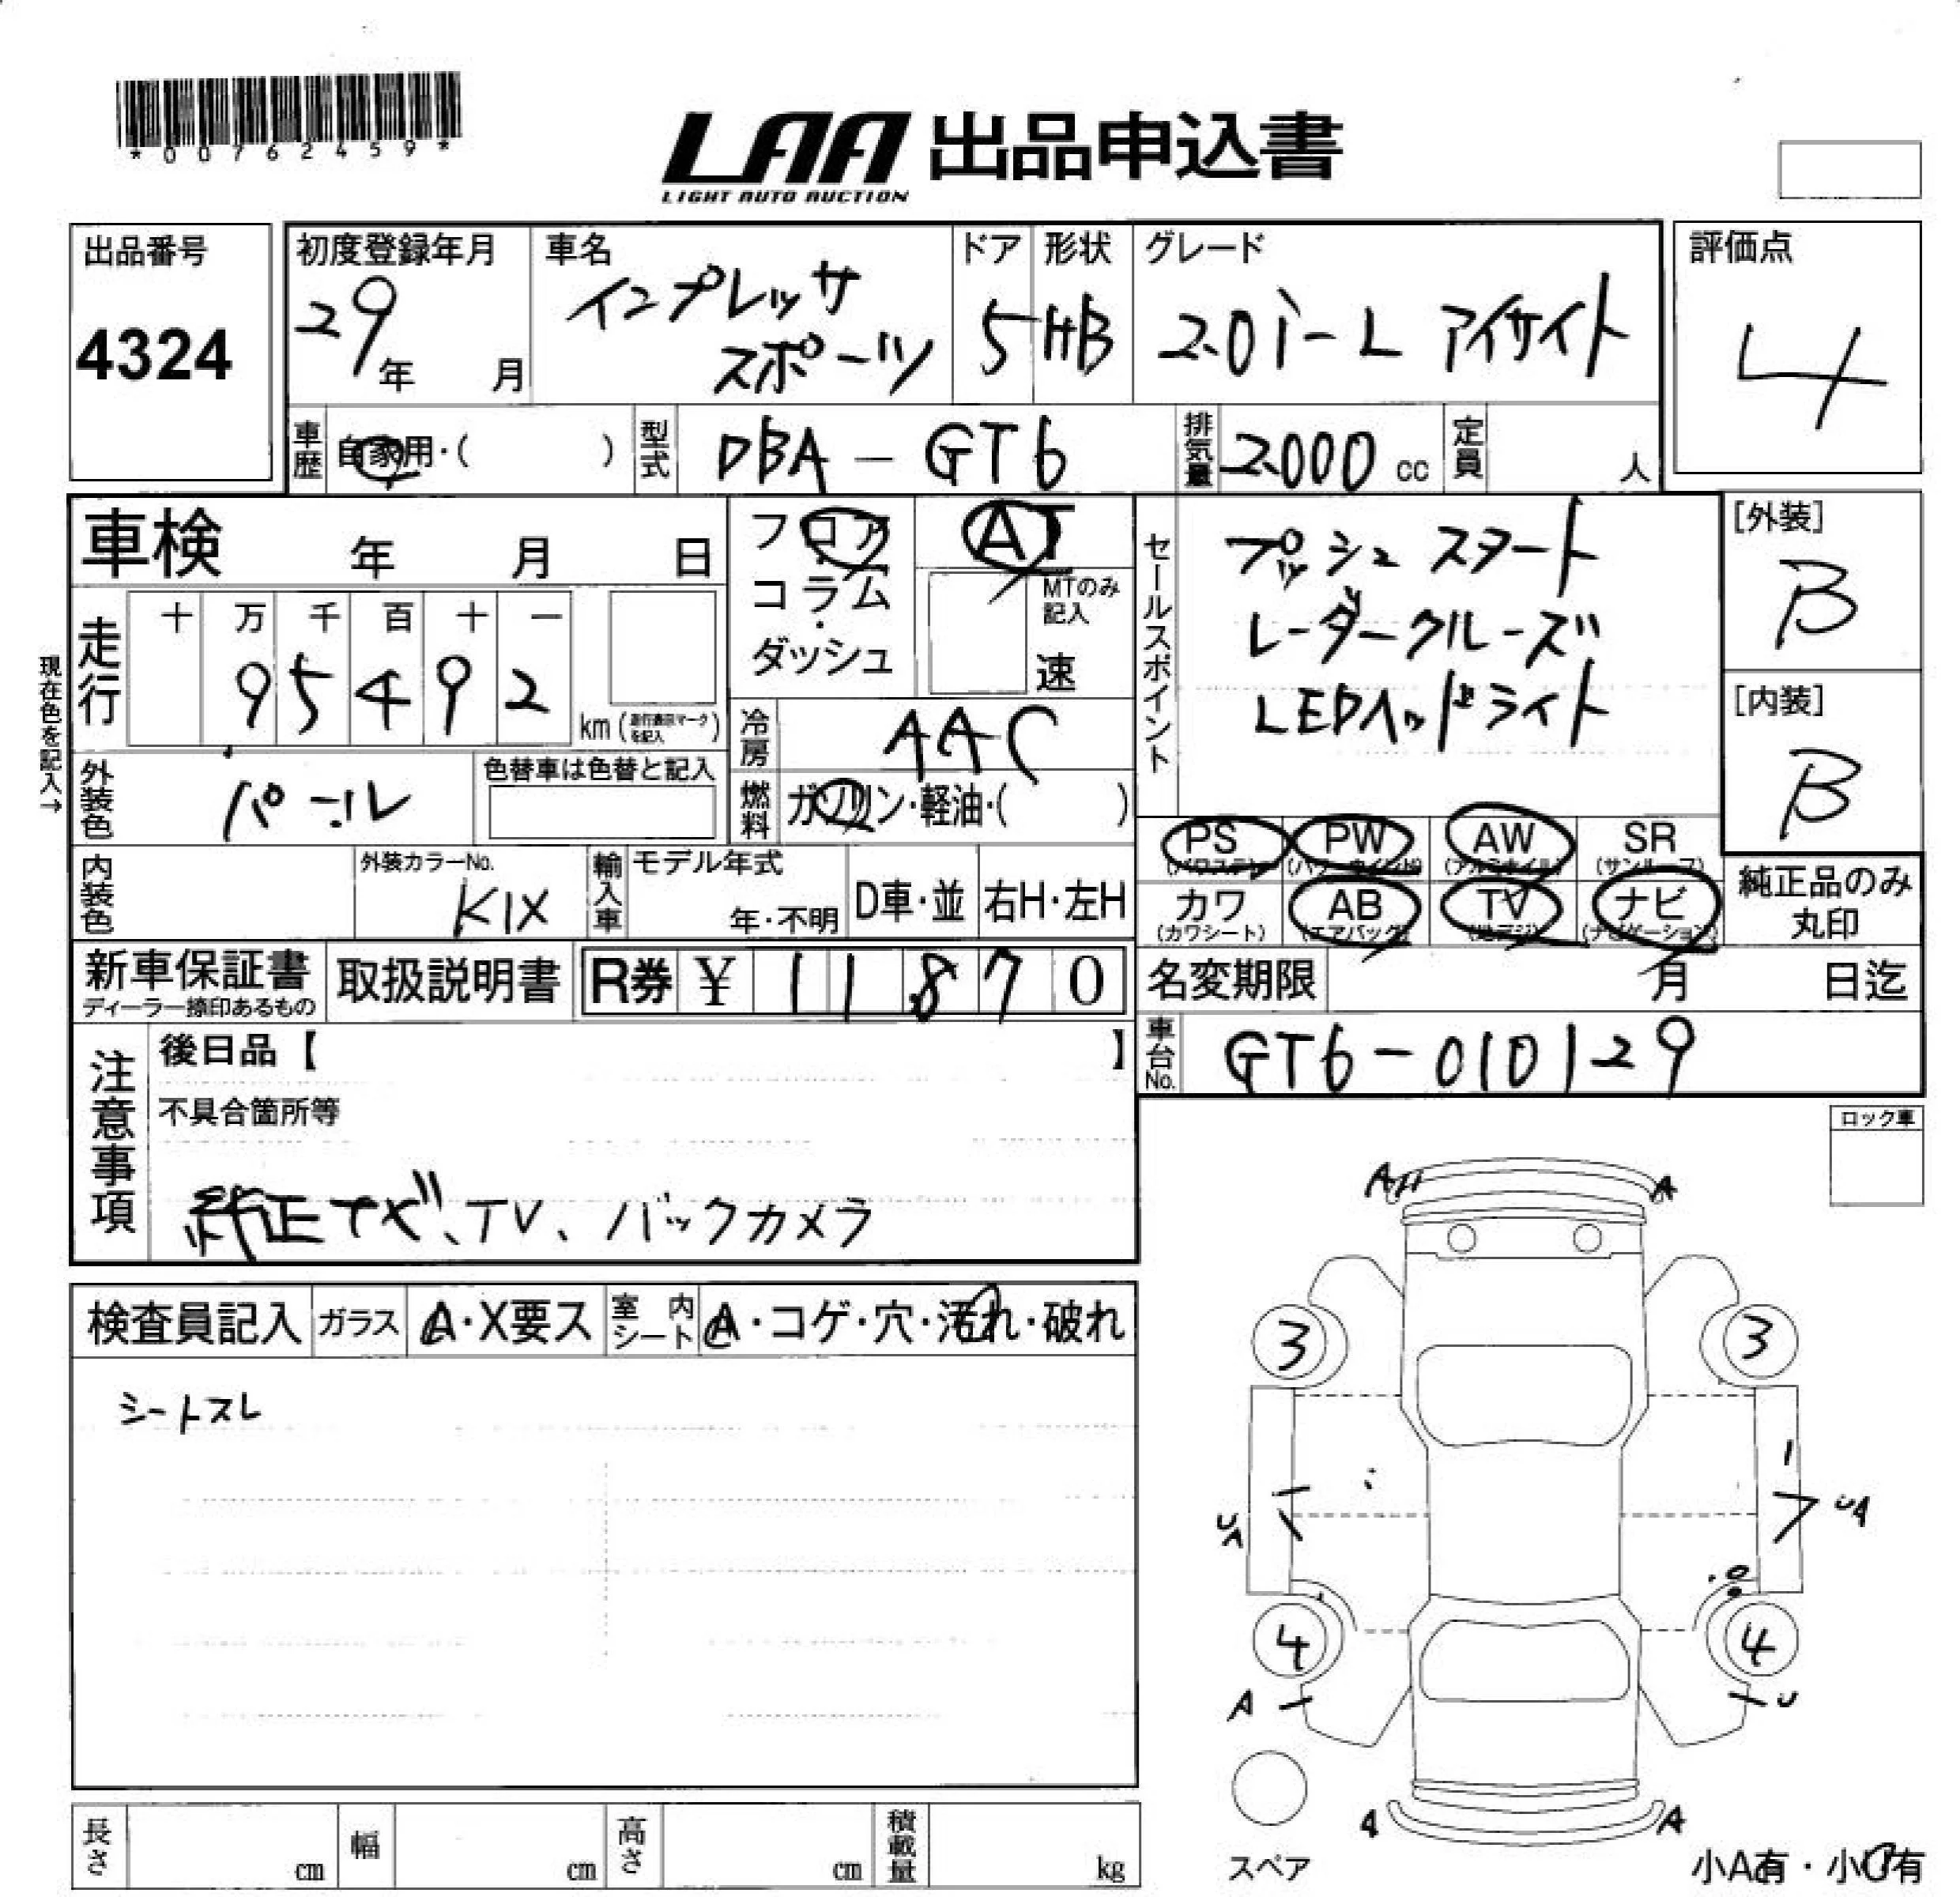 *00762459*
LAA 出品申込書
LIGHT AUTO AUCTION
出品番号
4324
初度登録年月
29年 月
車名
インプレッサ
スポーツ
ドア
5
形状
HB
グレード
2.0i-L アイサイト
評価点
4
車歴
自家用・( )
型式
DBA-GT6
排気量
2000 cc
定員
人
車検 年 月 日
フロア
コラム
ダッシュ
AT
MTのみ
記入
速
セールスポイント
プッシュスタート
レーダークルーズ
LEDヘッドライト
[外装]
B
[内装]
B
現在色を記入→
走行
十 万 千 百 十 一
9 5 4 9 2
km (走行表示マークを記入)
冷房
AAC
外装色
パール
色替車は色替と記入
燃料
ガソリン・軽油・( )
PS
PW
AW
SR
(パワステ) (パワーウインド) (アルミホイル) (サンルーフ)
カワ
AB
TV
ナビ
(カワシート) (エアバッグ) (地デジ) (ナビゲーション)
純正品のみ
丸印
内装色
外装カラーNo.
K1X
輸入車
モデル年式
年・不明
D車・並
右H・左H
新車保証書
ディーラー捺印あるもの
取扱説明書
R券 ¥ 11870
名変期限 月 日迄
車台No.
GT6-010129
注意事項
後日品【 】
不具合箇所等
純正ナビ、TV、バックカメラ
ロック車
検査員記入
ガラス
A・X要ス
室内シート
A・コゲ・穴・汚れ・破れ
シートスレ
A
A
3
3
UA
UA
4
4
A
U
A
A
スペア
小A有・小U有
長さ cm
幅 cm
高さ cm
積載量 kg